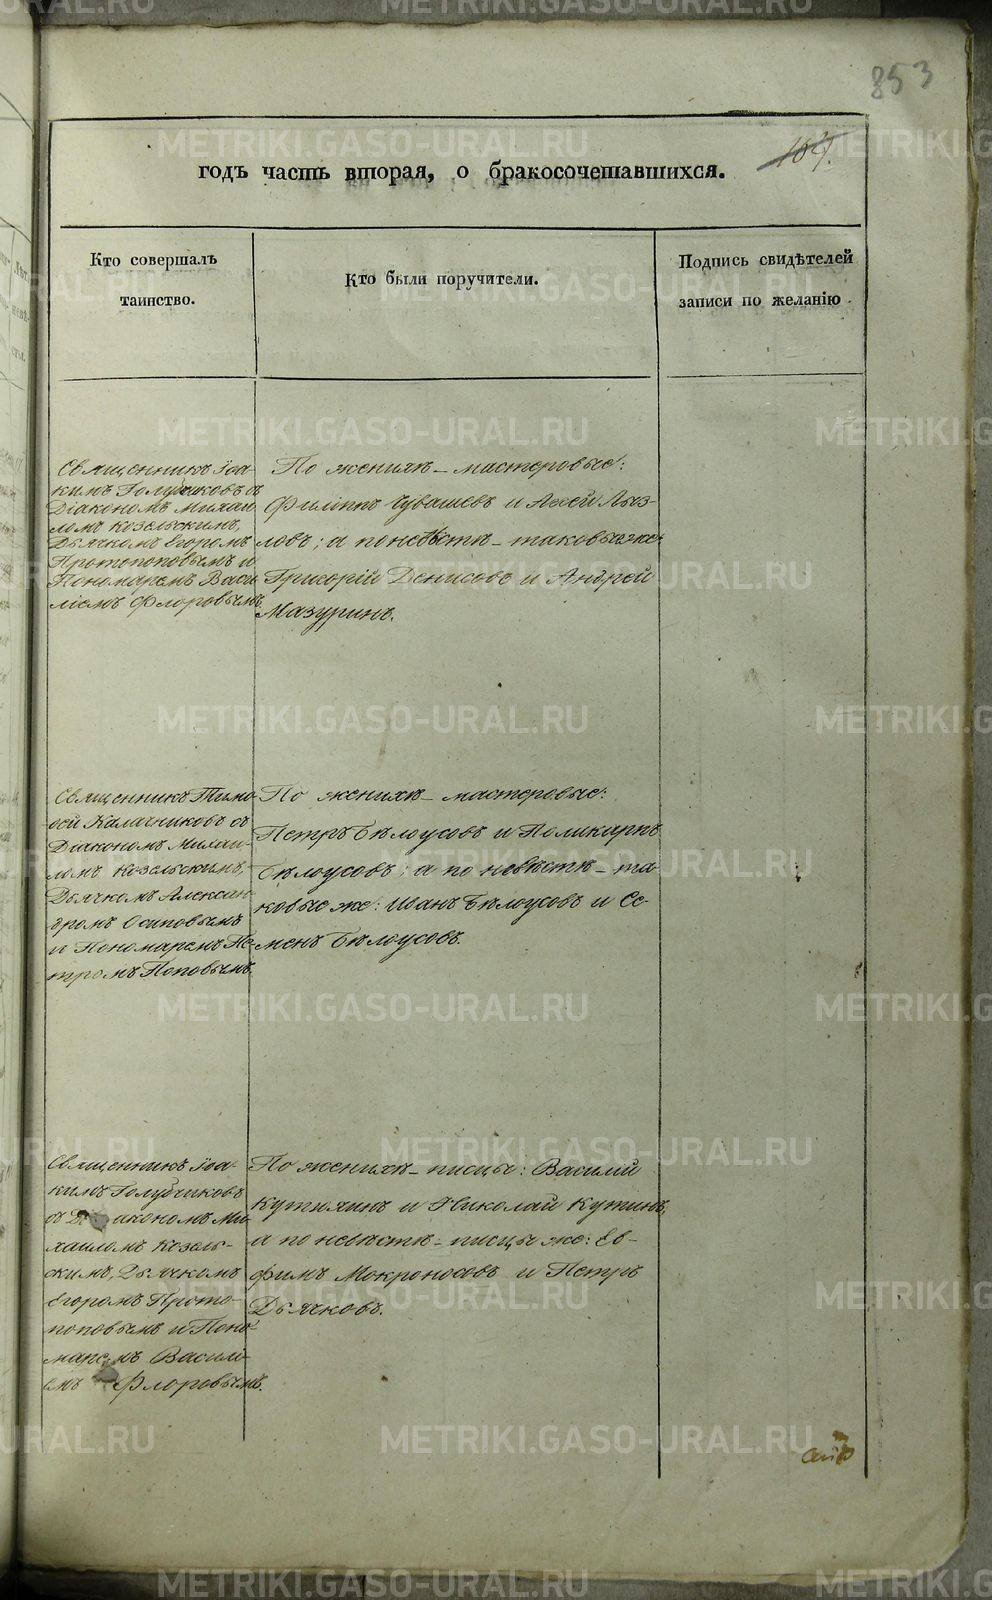 853
годъ часть вторая, о бракосочетавшихся.
Кто совершалъ
таинство.
Кто были поручители.
Подпись свидѣтелей
записи по желанію
Священникъ Іоа-
кимъ Голубчиковъ съ
Діакономъ Михаи
ломъ Козельскимъ,
Дьячкомъ Егоромъ
Протопоповымъ и
Пономаремъ Васи
ліемъ Флоровымъ.
По женихѣ - мастеровые:
Филіппъ Чувашевъ и
ловъ; а по невѣстѣ - таковые же:
Григорій Денисовъ и Андрей
Мазуринъ.
Священникъ Тимо
ѳей Калачниковъ съ
Діакономъ Михаи-
ломъ Козельскимъ,
Дьячкомъ Алексан-
дромъ Осиповымъ
и Пономаремъ Пе-
тромъ Поповымъ.
По женихѣ - мастеровые:
Петръ Бѣлоусовъ и Поликарпъ
Бѣлоусовъ; а по невѣстѣ - та-
ковые же: Иванъ Бѣлоусовъ и Се-
менъ Бѣлоусовъ.
Священникъ Іоа-
кимъ Голубчиковъ
съ Діакономъ Ми-
хаиломъ Козель-
скимъ, Дьячкомъ
Егоромъ Прото-
поповымъ и Поно-
маремъ Василі-
емъ Флоровымъ.
По женихѣ - писцы: Василій
Кутюхинъ и Николай Кутинъ,
а по невѣстѣ - писцы же: Ев-
фимъ Мокроносовъ и Петръ
Дьячковъ.
METRIKI.GASO-URAL.RU